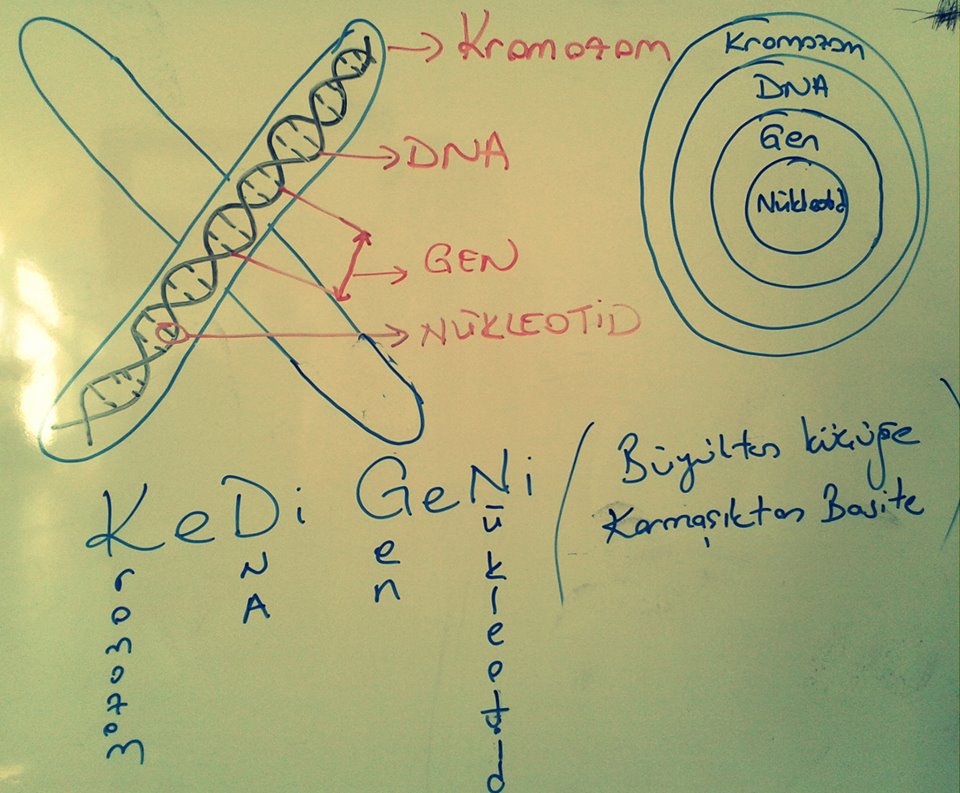 Kromozom
DNA
GEN
NÜKLEOTİD
Kromozom
DNA
Gen
Nükleotid
KeDi GeNi
Kromozom
DNA
Gen
Nükleotid
(Büyükten küçüğe
Karmaşıktan Basite)